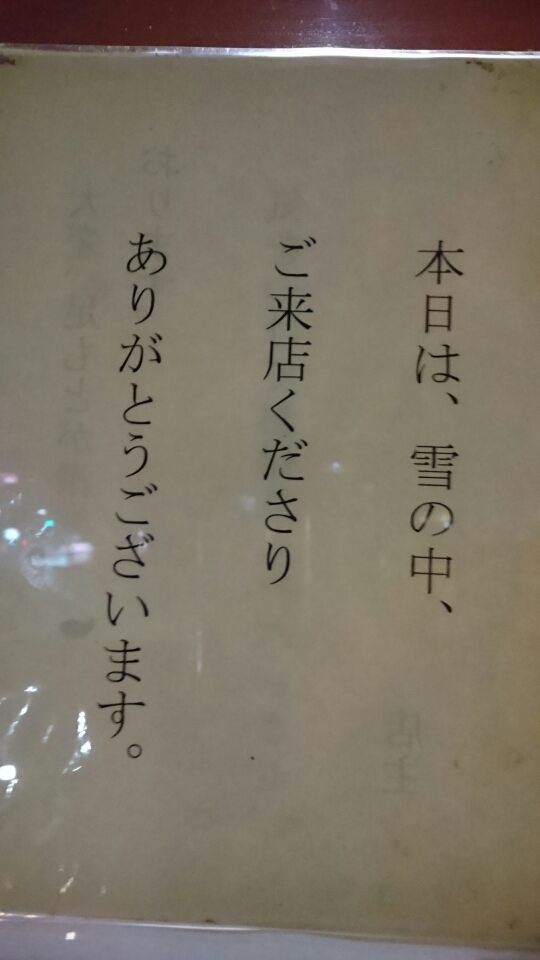 本日は、雪の中、
ご来店くださり
ありがとうございます。